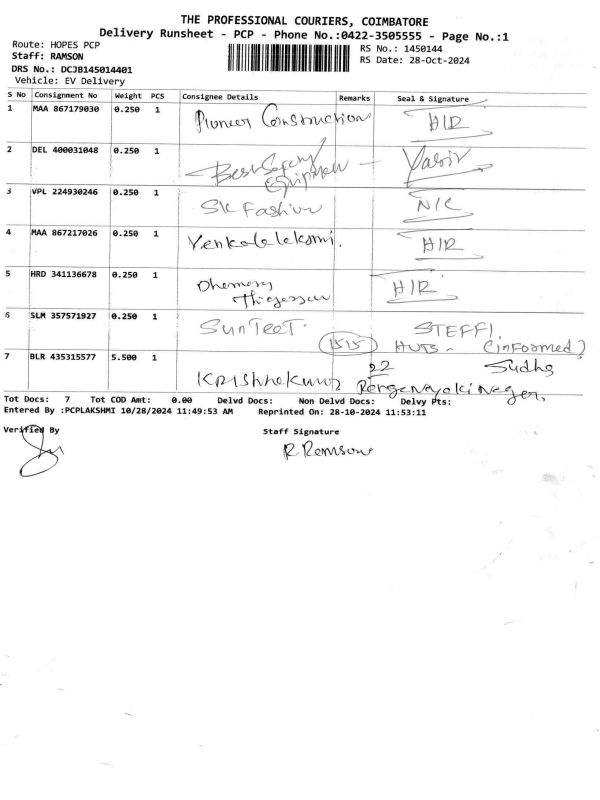 THE PROFESSIONAL COURIERS, COIMBATORE
Delivery Runsheet - PCP - Phone No.:0422-3505555 - Page No.:1
Route: HOPES PCP
RS No.: 1450144
Staff: RAMSON
RS Date: 28-Oct-2024
DRS No.: DCJB145014401
Vehicle: EV Delivery
S No Consignment No Weight PCS Consignee Details Remarks Seal & Signature
1 MAA 867179030 0.250 1 Pioneer Construction H/R
2 DEL 400031048 0.250 1 Best Safety
Equipment
3 VPL 224930246 0.250 1 SK Fashion N/C
4 MAA 867217026 0.250 1 Venkatalakshmi. H/R
5 HRD 341136678 0.250 1 H/R
6 SLM 357571927 0.250 1 SunTeeT. STEFFI
1515 HUTS - (informed)
7 BLR 435315577 5.500 1 Krishnakumar 22 Sudha
Tot Docs: 7 Tot COD Amt: 0.00 Delvd Docs: Non Delvd Docs: Delvy Pts:
Entered By :PCPLAKSHMI 10/28/2024 11:49:53 AM Reprinted On: 28-10-2024 11:53:11
Verified By
Staff Signature
R Ramson